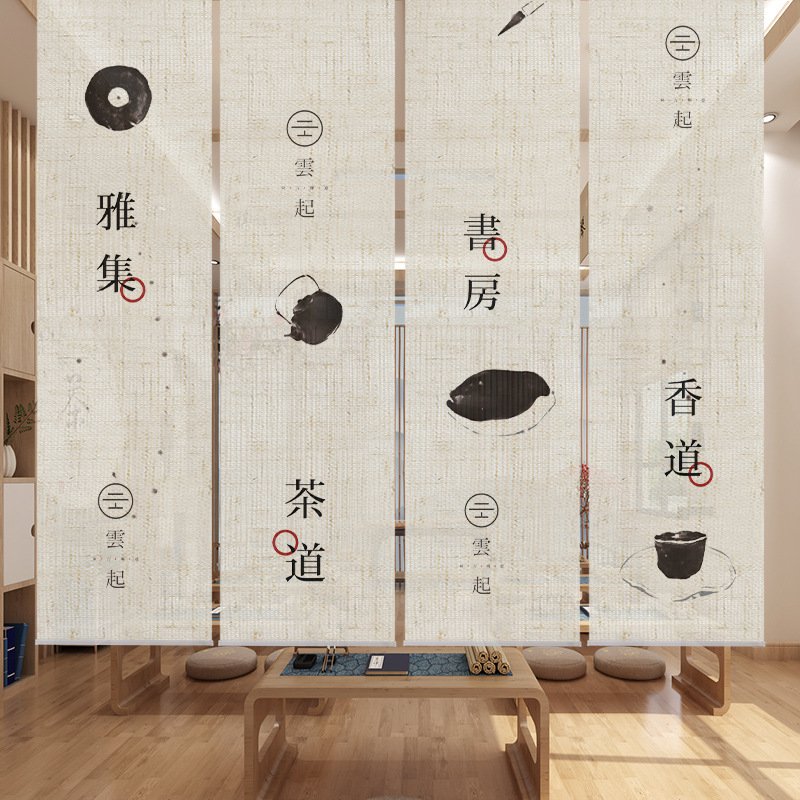 雅集
雲起
雲起
茶道
書房
雲起
雲起
香道